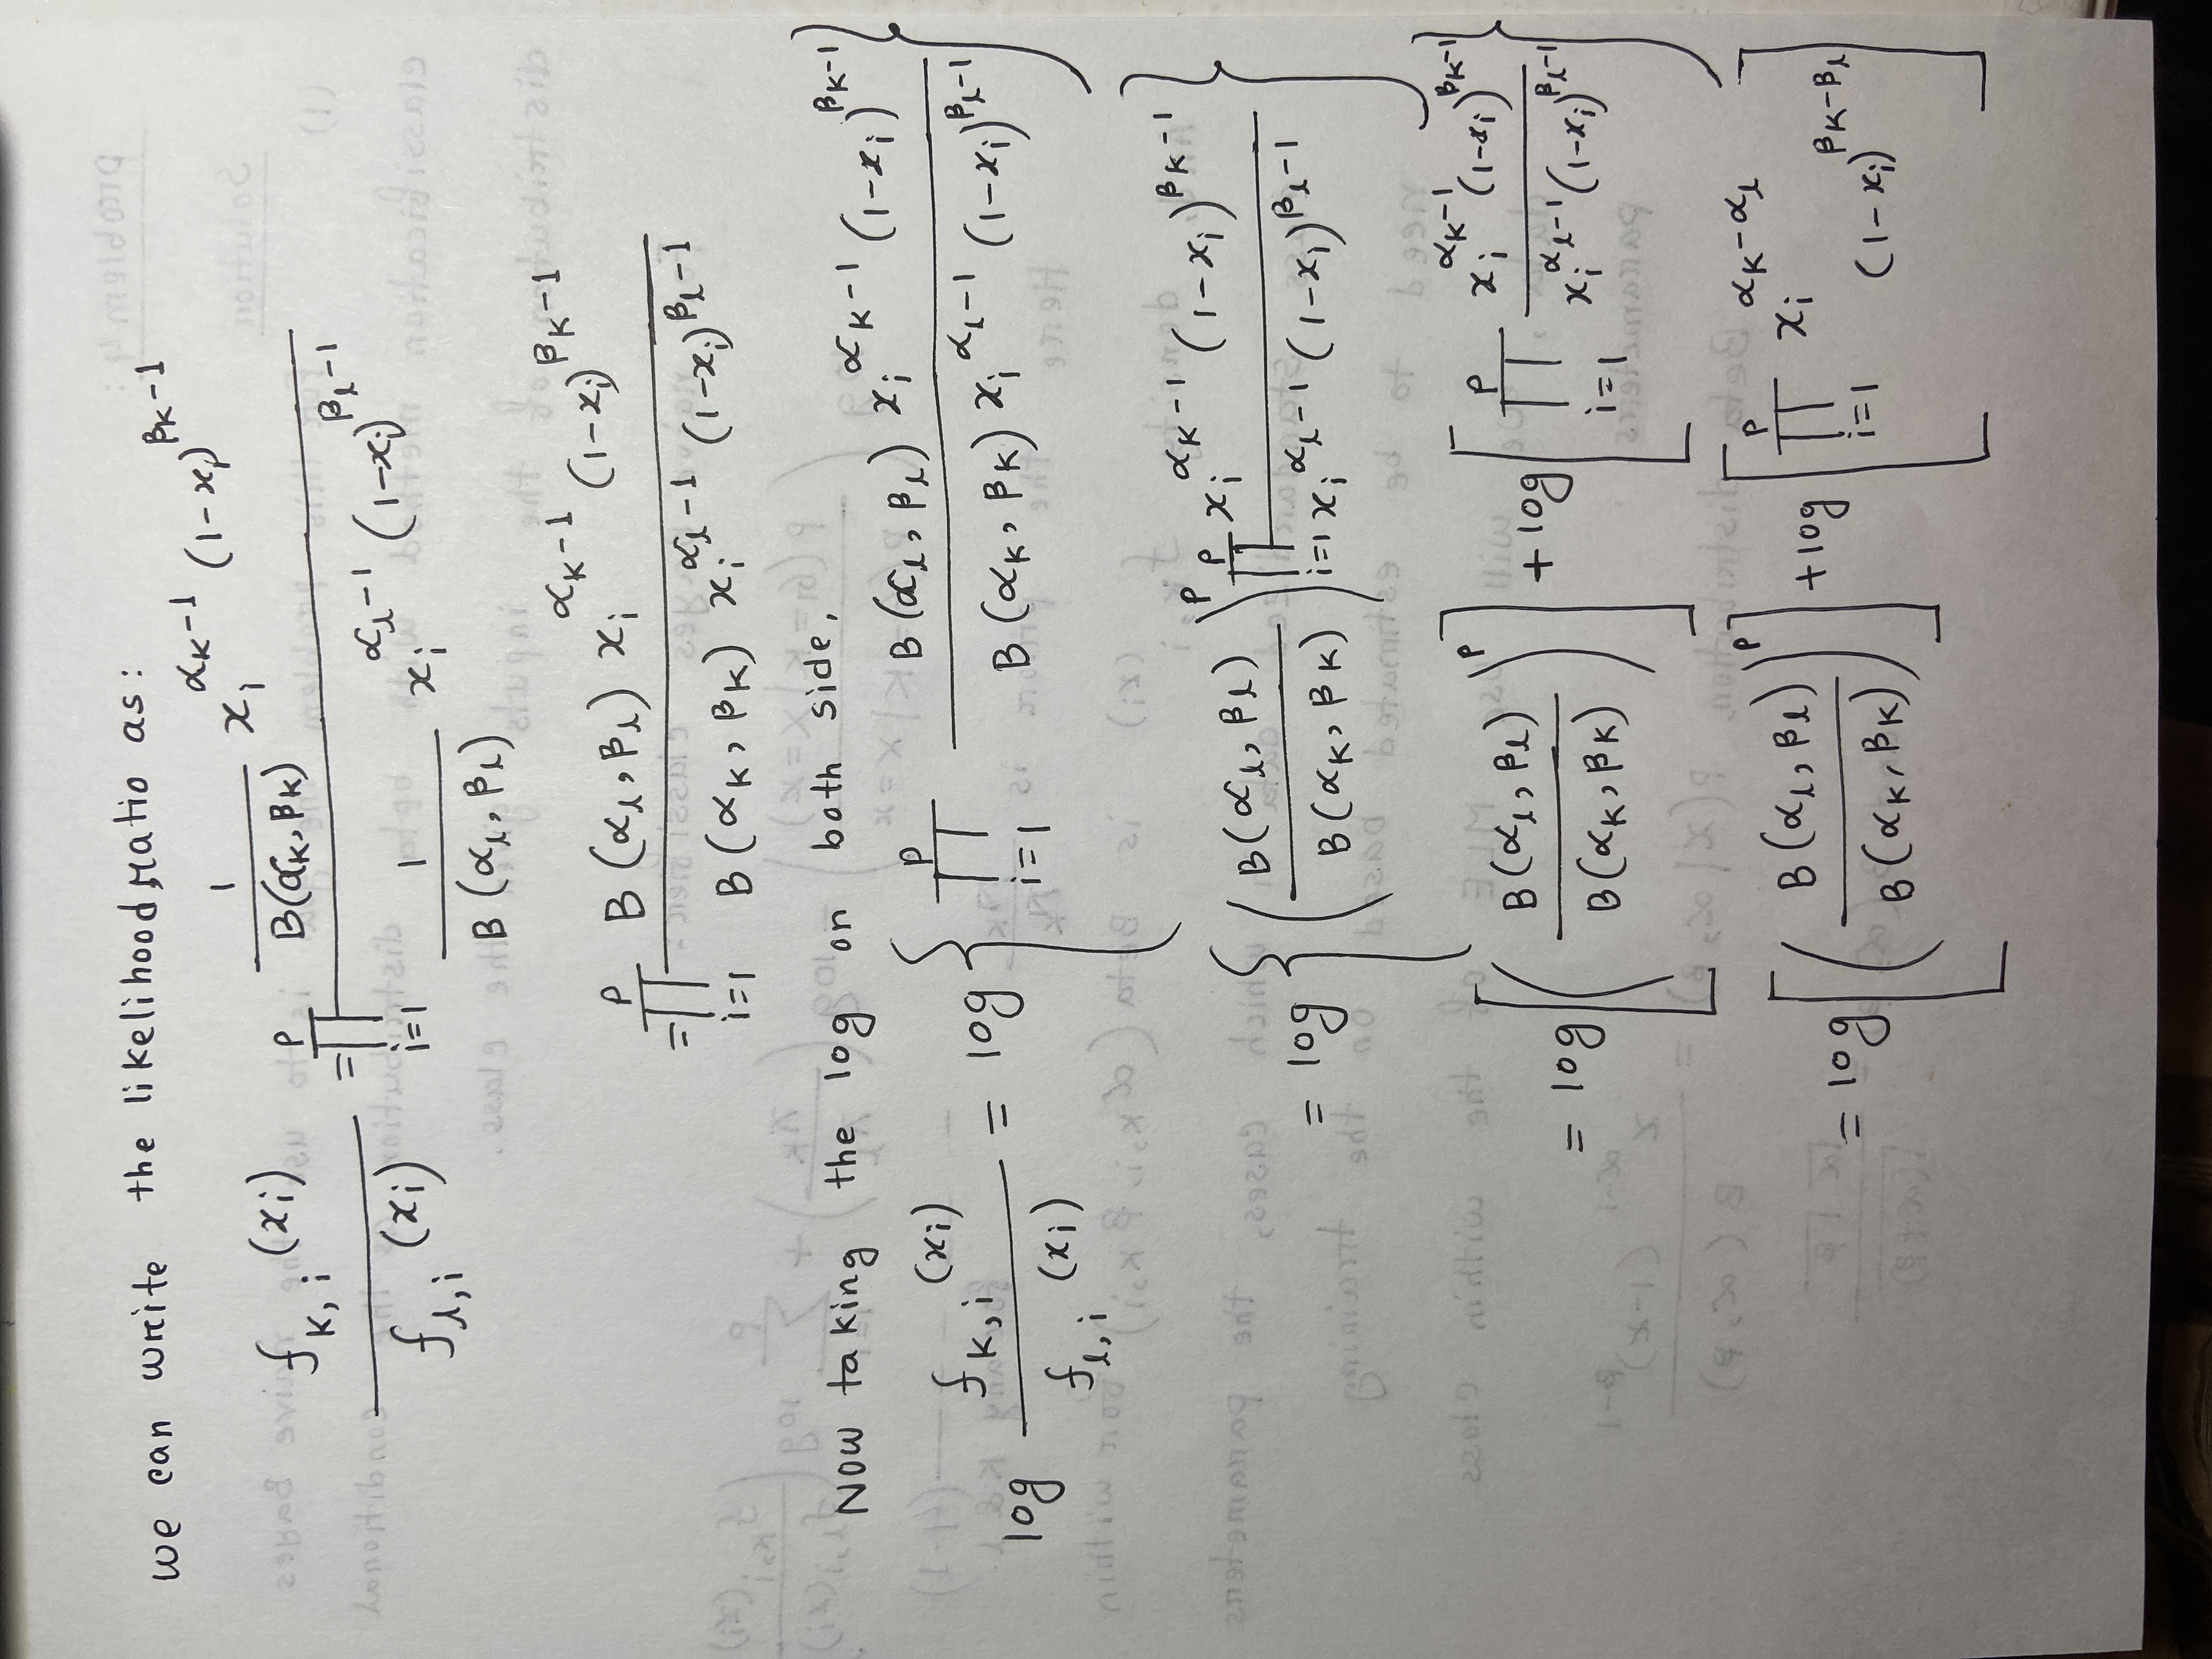 we can write the likelihood ratio as:
f_{k,i}(x_i) / f_{l,i}(x_i) = ∏_{i=1}^{P} [1/B(α_k, β_k) x_i^{α_k-1} (1-x_i)^{β_k-1}] / [1/B(α_l, β_l) x_i^{α_l-1} (1-x_i)^{β_l-1}]
= ∏_{i=1}^{P} [B(α_l, β_l) x_i^{α_k-1} (1-x_i)^{β_k-1}] / [B(α_k, β_k) x_i^{α_l-1} (1-x_i)^{β_l-1}]
Now taking the log on both side,
log f_{k,i}(x_i) / f_{l,i}(x_i) = log { ∏_{i=1}^{P} [B(α_l, β_l) x_i^{α_k-1} (1-x_i)^{β_k-1}] / [B(α_k, β_k) x_i^{α_l-1} (1-x_i)^{β_l-1}] }
= log { (B(α_l, β_l) / B(α_k, β_k))^P ∏_{i=1}^{P} x_i^{α_k-1} (1-x_i)^{β_k-1} / x_i^{α_l-1} (1-x_i)^{β_l-1} }
= log [ (B(α_l, β_l) / B(α_k, β_k))^P ] + log [ ∏_{i=1}^{P} x_i^{α_k-1} (1-x_i)^{β_k-1} / x_i^{α_l-1} (1-x_i)^{β_l-1} }
= log [ (B(α_l, β_l) / B(α_k, β_k))^P ] + log [ ∏_{i=1}^{P} x_i^{α_k-α_l} (1-x_i)^{β_k-β_l} ]